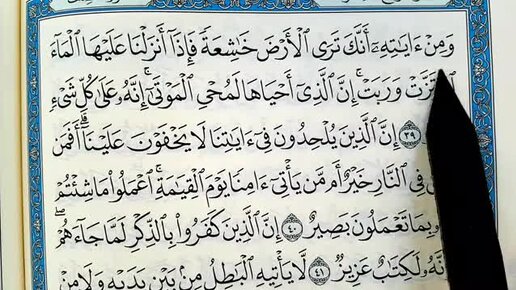 وَمِنْ ءَايَٰتِهِۦٓ أَنَّكَ تَرَى ٱلْأَرْضَ خَٰشِعَةً فَإِذَآ أَنزَلْنَا عَلَيْهَا ٱلْمَآءَ
وَرَبَتْ ۚ إِنَّ ٱلَّذِىٓ أَحْيَاهَا لَمُحْىِ ٱلْمَوْتَىٰٓ ۚ إِنَّهُۥ عَلَىٰ كُلِّ شَىْءٍ
٣٩ إِنَّ ٱلَّذِينَ يُلْحِدُونَ فِىٓ ءَايَٰتِنَا لَا يَخْفَوْنَ عَلَيْنَآ ۗ أَفَمَن
فِى ٱلنَّارِ خَيْرٌ أَم مَّن يَأْتِىٓ ءَامِنًا يَوْمَ ٱلْقِيَٰمَةِ ۚ ٱعْمَلُوا۟ مَا شِئْتُمْ
بِمَا تَعْمَلُونَ بَصِيرٌ ٤٠ إِنَّ ٱلَّذِينَ كَفَرُوا۟ بِٱلذِّكْرِ لَمَّا جَآءَهُمْ ۖ
لَكِتَٰبٌ عَزِيزٌ ٤١ لَّا يَأْتِيهِ ٱلْبَٰطِلُ مِنۢ بَيْنِ يَدَيْهِ وَلَا مِنْ